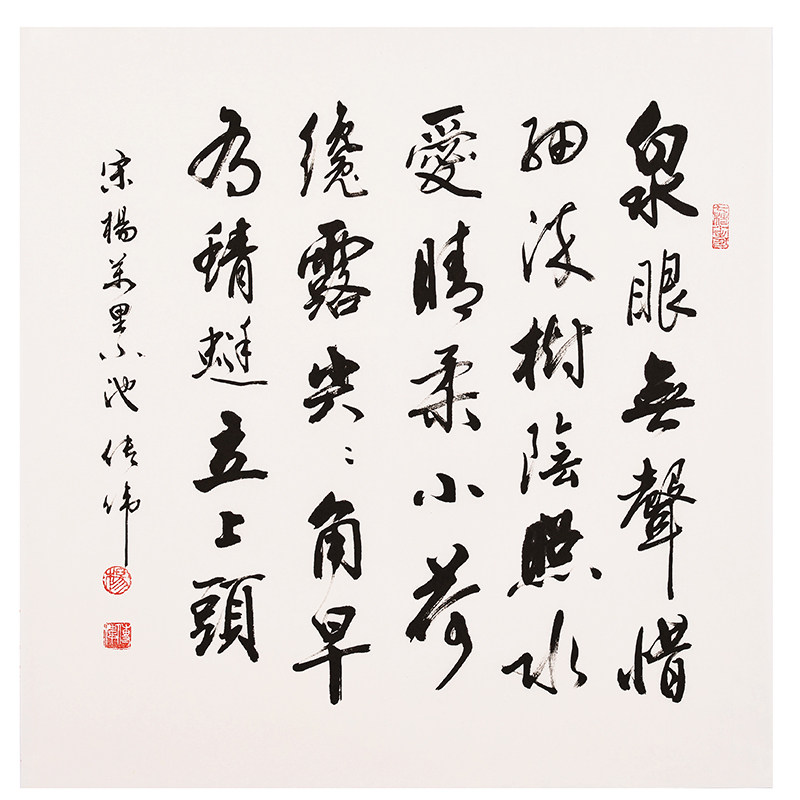 泉眼無聲惜
細流樹陰照水
愛晴柔小荷
纔露尖〻角早
有蜻蜓立上頭
宋楊萬里小池 傳偉
楊